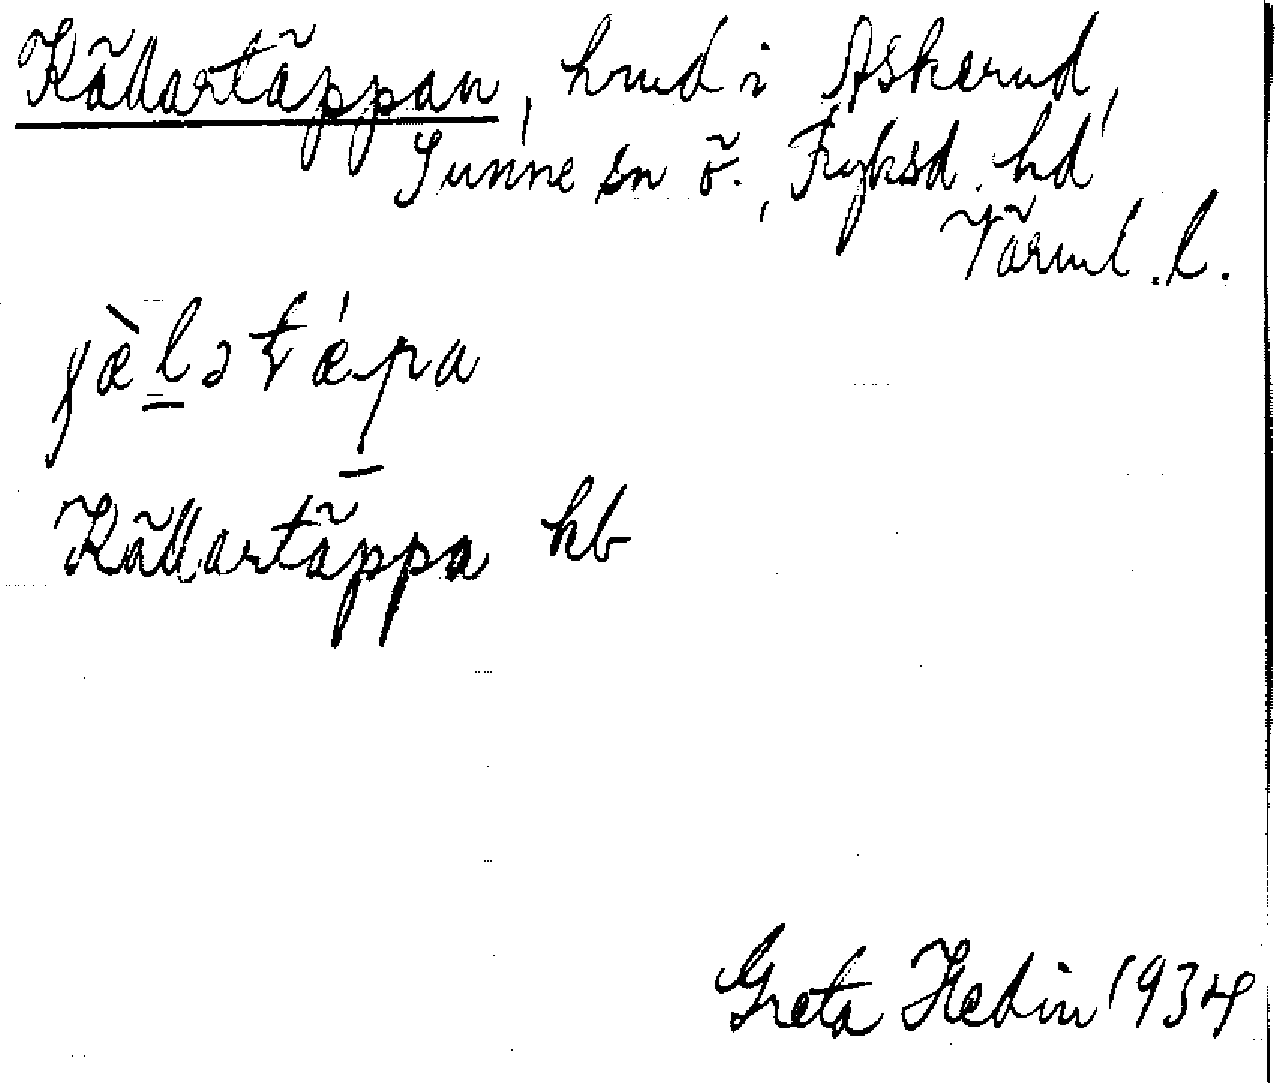 Källartäppan, hmd i Askerud,
Sunne sn ö., Fryksd. hd
Värml. l.
Källartäppa kb
Greta Hedin 1934